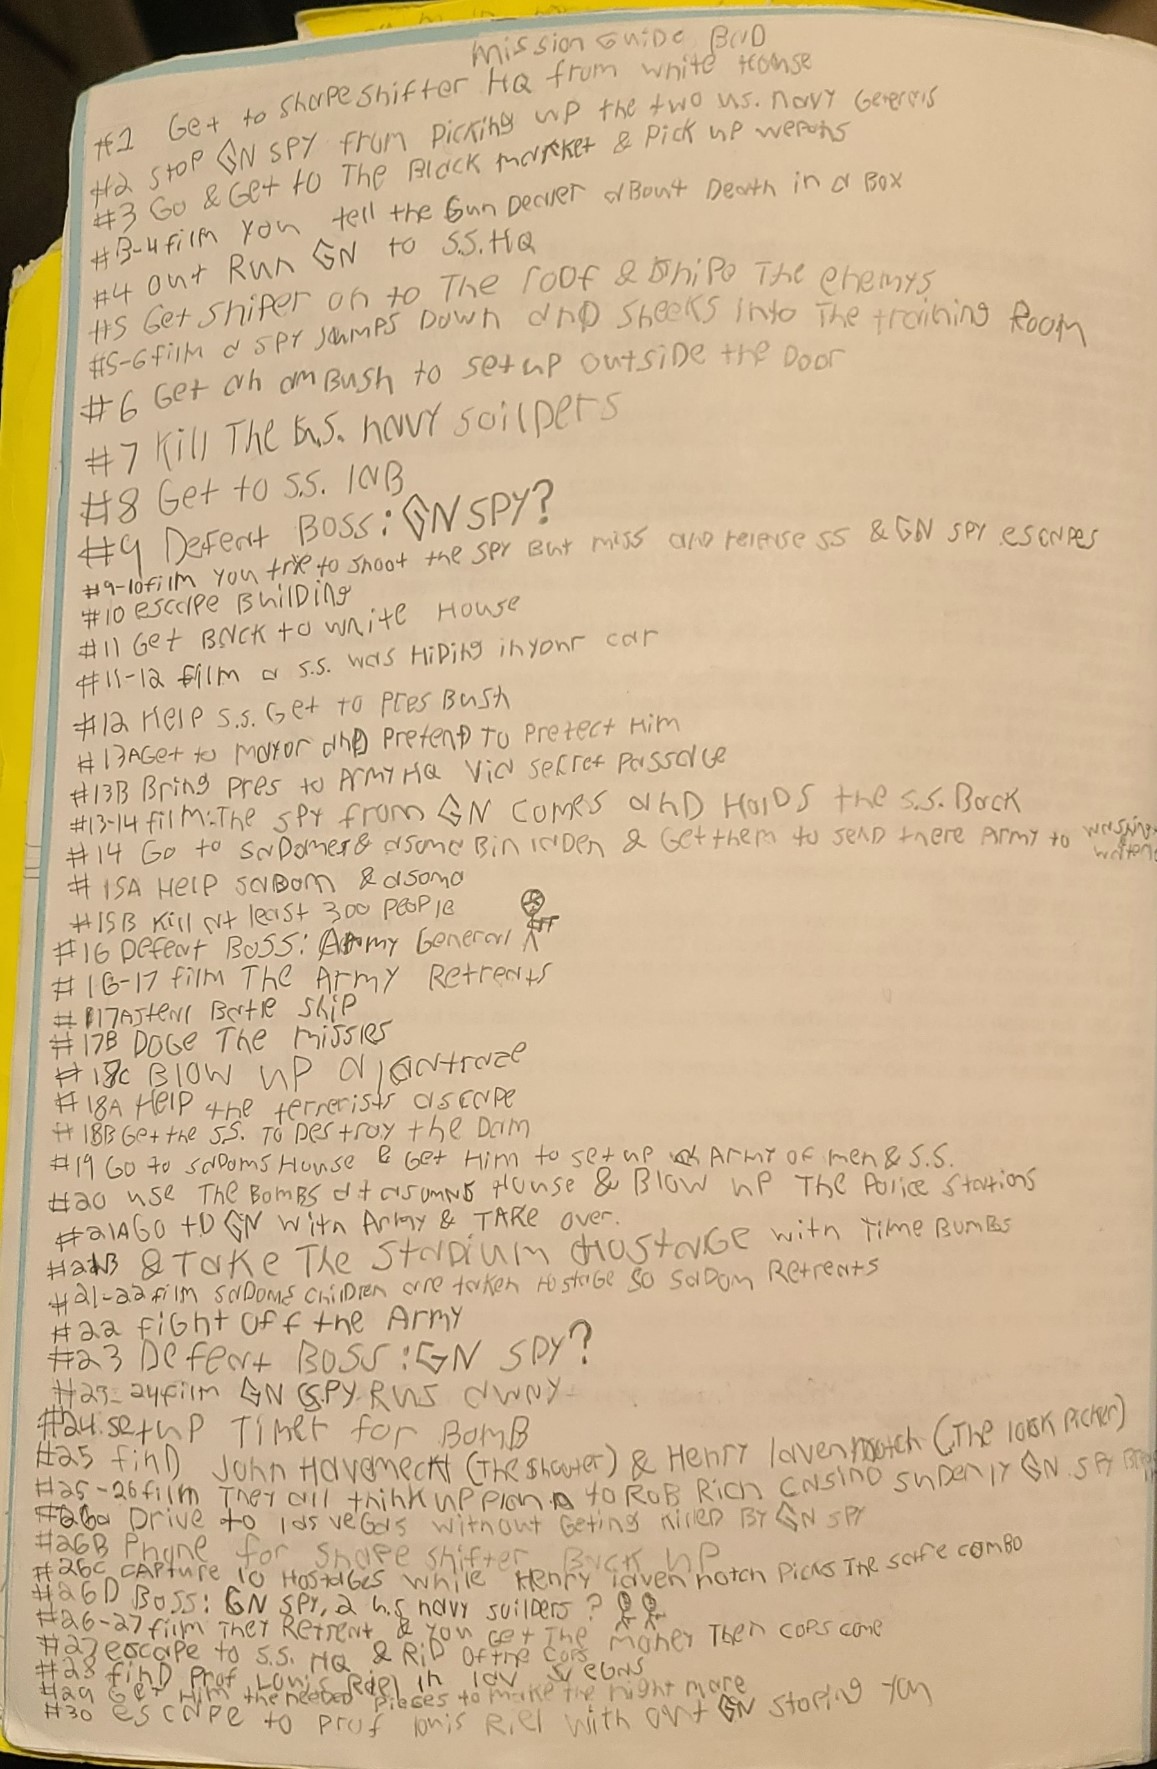 Mission Guide Bad
#1 Get to shapeshifter HQ from white House
#2 stop GN SPY from Picking up the two us. navy Generels
#3 Go & Get to The Black market & Pick up wepons
#3-4 film you tell the Gun Dealer aBout Death in a Box
#4 out Run GN to S.S. HQ
#5 Get sniper on to The roof & Snipe The enemys
#5-6 film a spy jumps Down anD sneeks into The training Room
#6 Get an amBush to setup outside the Door
#7 Kill The u.s. navy soilDers
#8 Get to S.S. laB
#9 Defeat Boss: GN SPY?
#9-10 film you trie to shoot the spy But miss and relerse SS & GN spy escapes
#10 escape BuilDing
#11 Get Back to white House
#11-12 film a s.s. was HiDing in your car
#12 Help s.s. Get to Pres Bush
#13A Get to mayor anD PretenD To Pretect Him
#13B Bring pres to Army HQ via secret Passage
#13-14 film: The spy from GN Comes anD HolDs the s.s. Back
#14 Go to saDomer & asoma Bin laDen & Get them to senD there Army to
#15A Help saDom & asoma
#15B Kill at least 300 PeoPle
#16 Defeat Boss: Army General
#16-17 film The Army Retreats
#17A steal Batle ship
#17B DoGe The missles
#18c Blow up
#18A Help the terrerists ascape
#18B Get the s.s. To Destroy the Dam
#19 Go to saDoms House & Get Him to setup Army of men & s.s.
#20 use The BomBs at asomas House & Blow up The Police Stations
#21A Go to GN with Army & TAKe over.
#21B & Take The StaDium Hostage with Time BomBs
#21-22 film saDoms chilDren are taken Hostage so saDom Retreats
#22 fight off the Army
#23 Defeat Boss: GN SPY?
#23-24 film GN SPY Runs away
#24. setup Timer for BomB
#25 finD John Havameckt (The Shooter) & Henry lavennotch (The lock Picker)
#25-26 film They all think up plan to RoB Rich Casino sudenly GN. SPY
#26a Drive to las vegas without Geting killed By GN SPY
#26B Phone for shape shifter Back up
#26C CAPture 10 Hostages while Henry lavennotch Picks The safe combo
#26D Boss: GN SPY, 2 u.s navy soilders?
#26-27 film They Retreat & you Get The money Then cops come
#27 escape to S.S. HQ & RiD Of the Cops
#28 finD Prof Louis Riel in las vegas
#29 Get Him the needed Pieces to make the night mare
#30 escape to Prof louis Riel with out GN stoping you